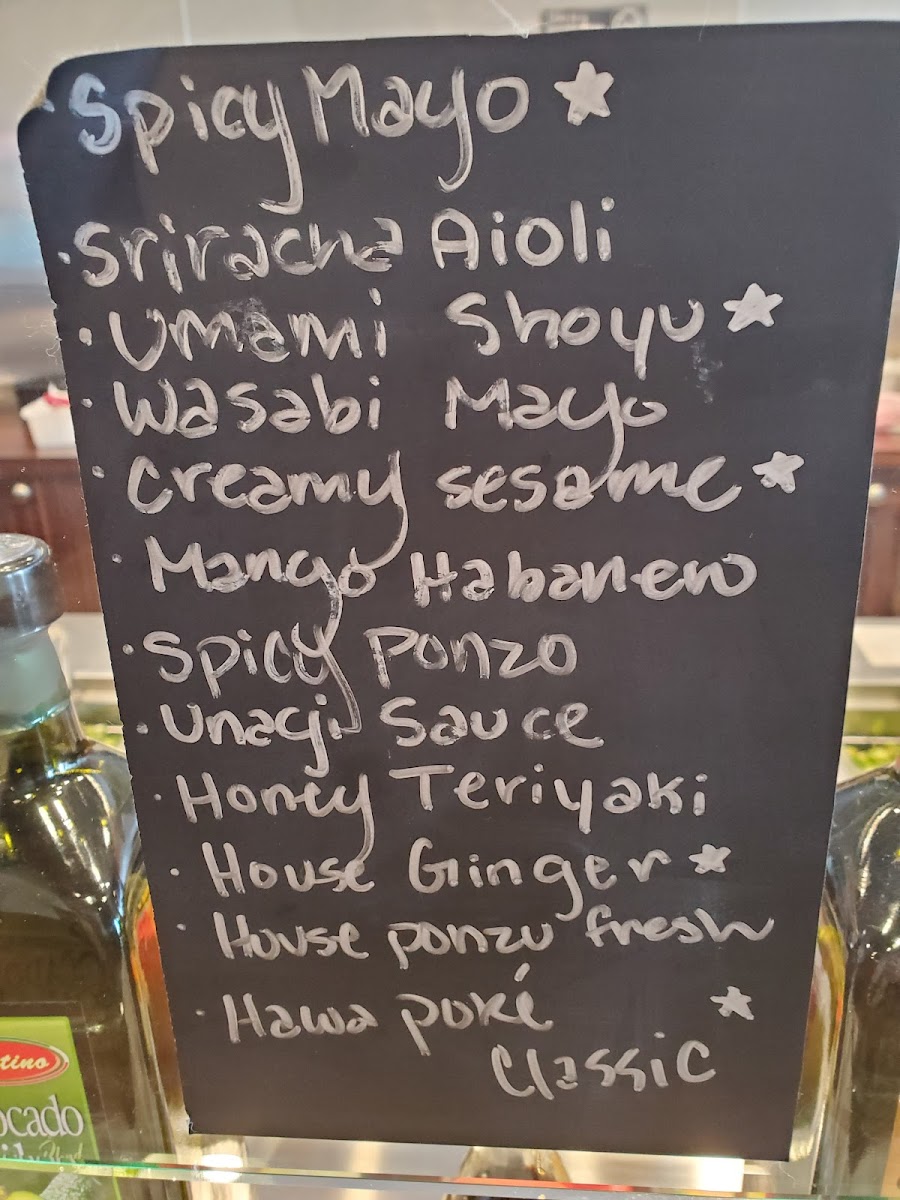 Spicy Mayo ☆
· Sriracha Aioli
· Umami Shoyu ☆
· Wasabi Mayo
· Creamy sesame ☆
· Mango Habanero
· Spicy Ponzo
· Unagi Sauce
· Honey Teriyaki
· House Ginger ☆
· House ponzu fresh
· Hawa poké ☆
Classic
tino
ocado